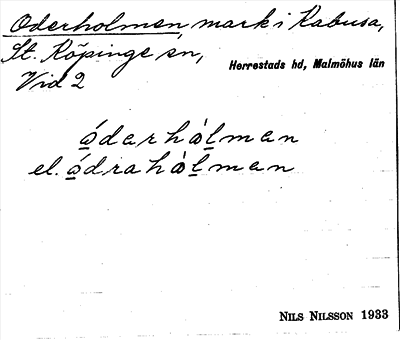 Oderholmen, mark i Kabusa,
St. Köpinge sn,
Herrestads hd, Malmöhus län
Vid 2
óderhòlmen
el. ódrahòlmen
NILS NILSSON 1933